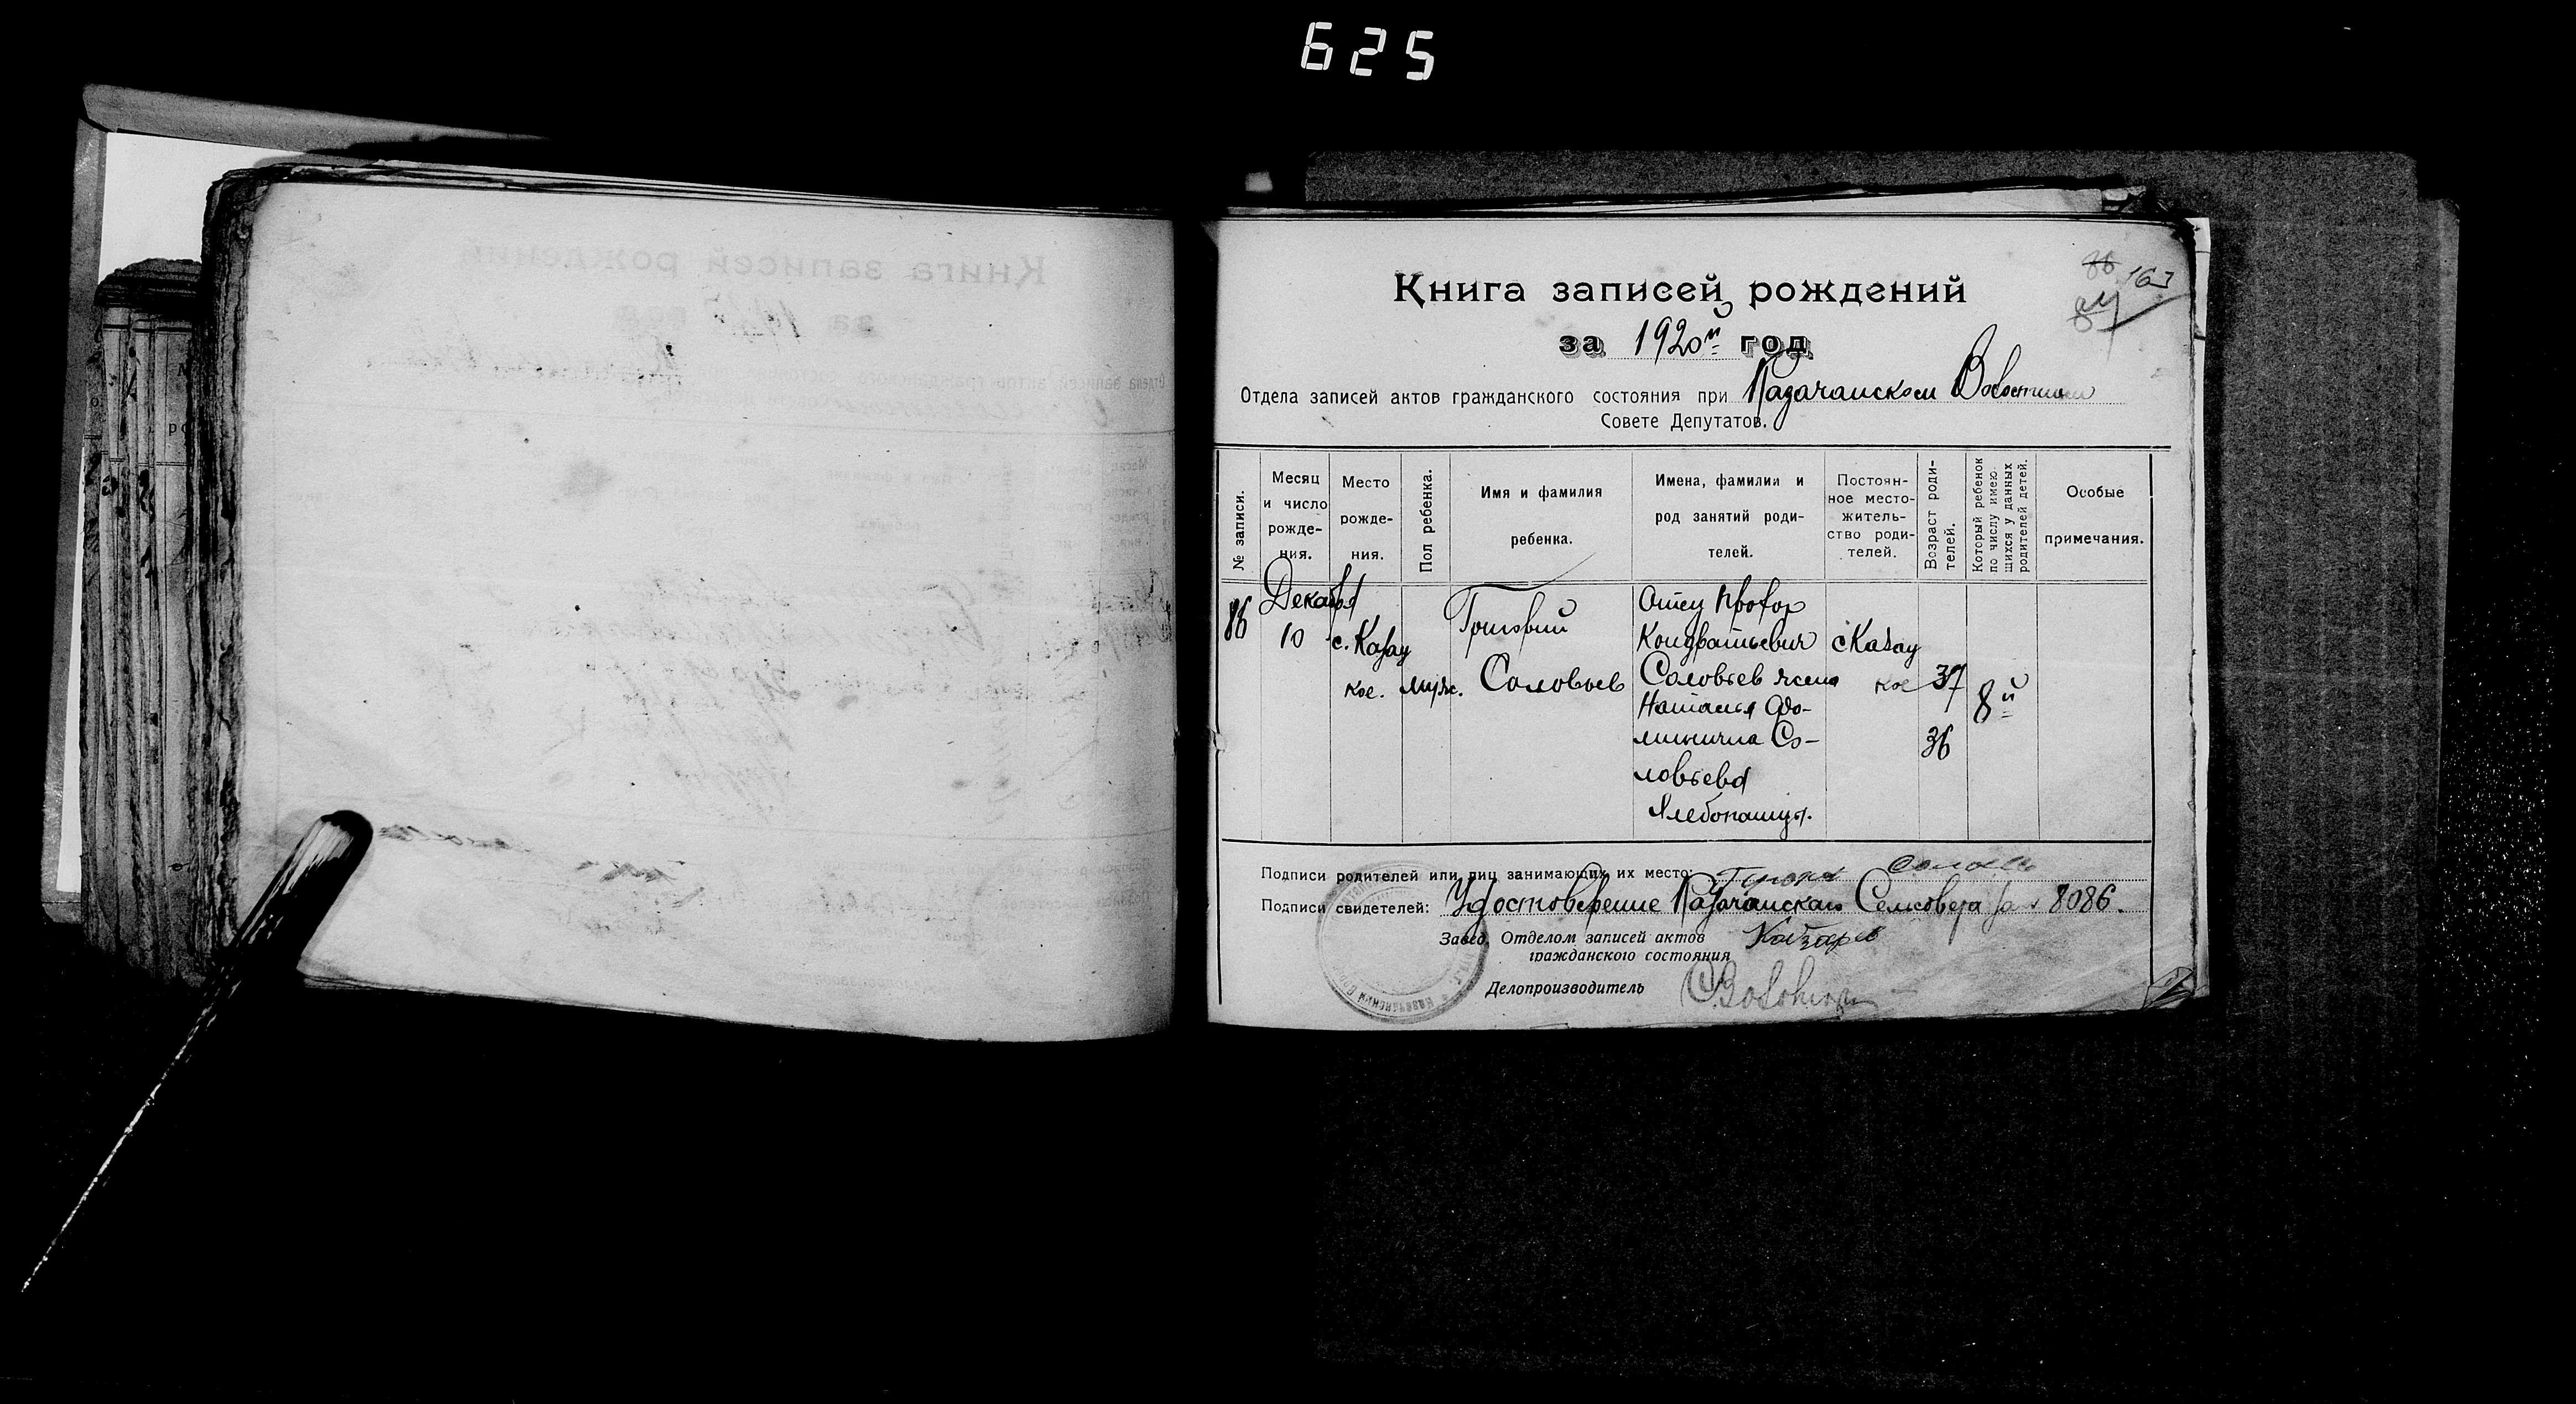 625
86
163
Книга записей рождений
за 1920й год
Отдела записей актов гражданского состояния при Казачанском Волостном
Совете Депутатов.
№ записи.
Месяц и число рожде-ния.
Место рожде-ния.
Пол ребенка.
Имя и фамилия ребенка.
Имена, фамилии и род занятий роди-телей.
Постоян-ное место-житель-ство роди-телей.
Возраст роди-телей.
Который ребенок по числу имею щихся у данных родителей детей.
Особые примечания.
86
Декабря
10
с. Казац
кое.
муж.
Соловьев
Отец Прохор
Кондратьевич
Соловьев жена
Наталья
Со-
ловьева
Хлебопашцы.
с Казац
кое
37
36
8й
Подписи родителей или лиц занимающих их место:
Подписи свидетелей: Удостоверение Казачанского Сельсовета за № 8086.
Завед. Отделом записей актов
гражданского состояния
Делопроизводитель